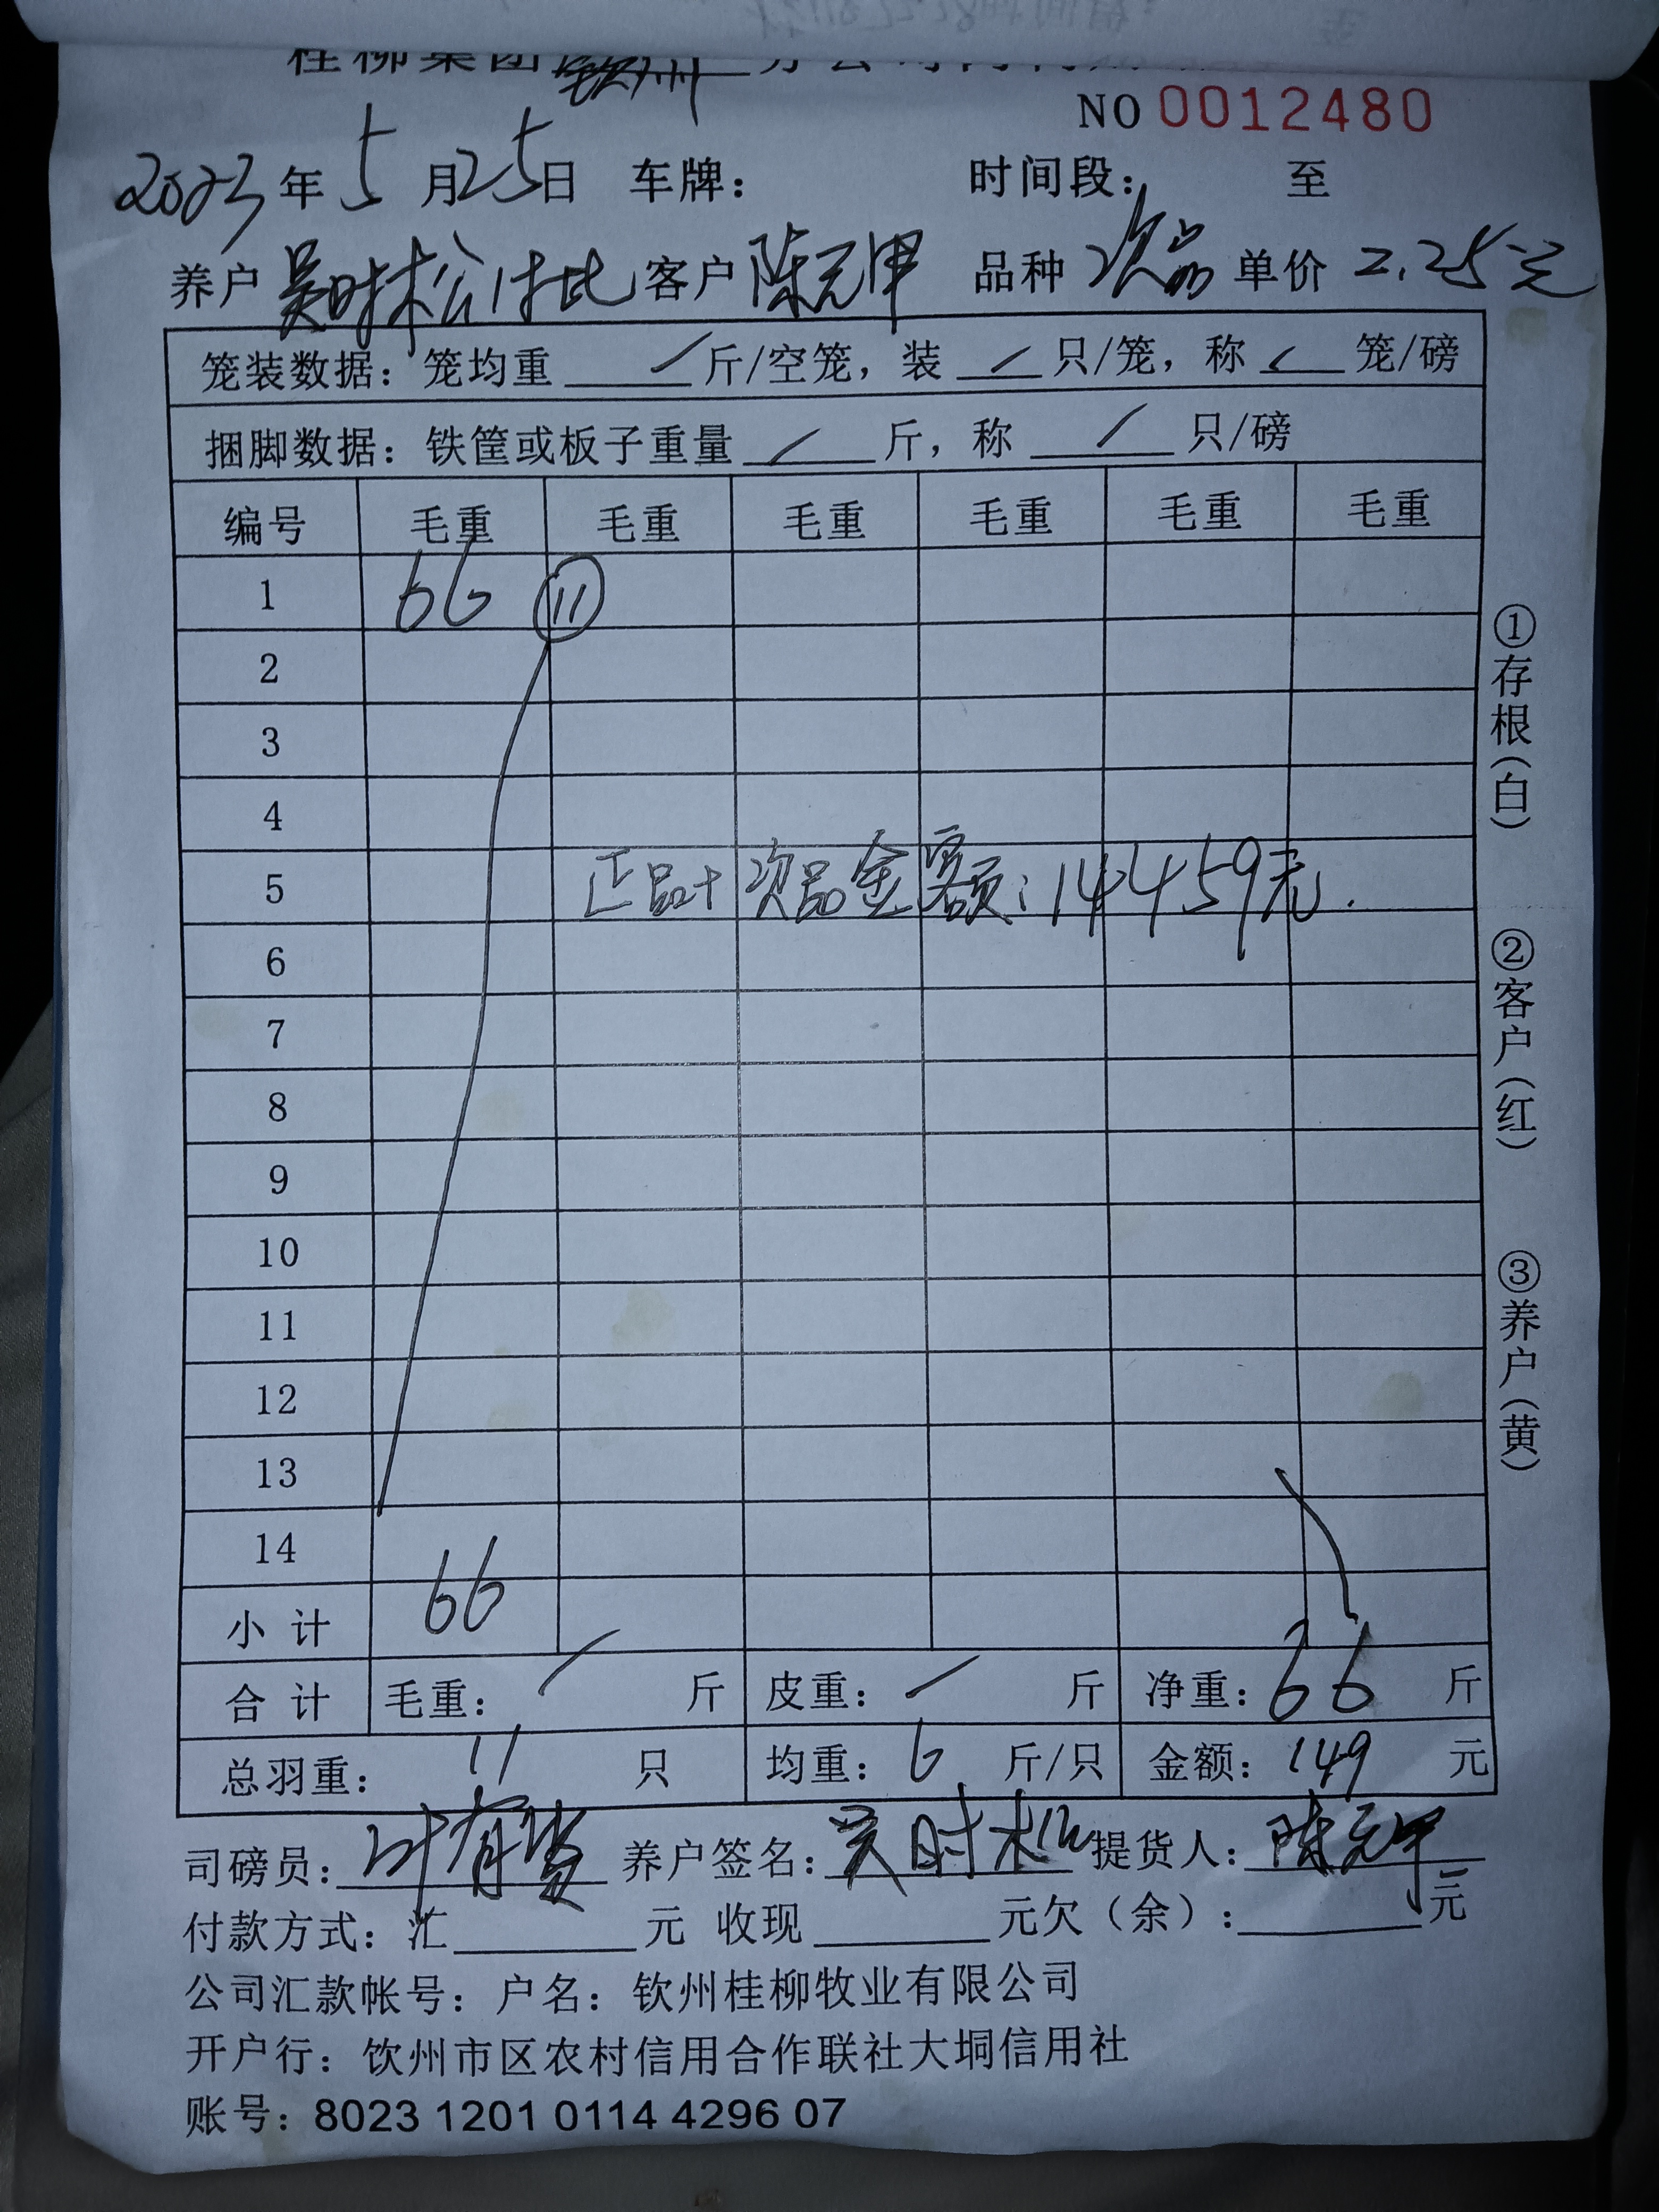 桂柳集团钦州分公司
NO 0012480
2023年5月25日 车牌： 时间段： 至
养户 吴时松 客户 陈元甲 品种 次品 单价 2.25元
笼装数据：笼均重 / 斤/空笼，装 / 只/笼，称 / 笼/磅
捆脚数据：铁筐或板子重量 / 斤，称 / 只/磅
编号 毛重 毛重 毛重 毛重 毛重 毛重
1 66 ⑪
2
3
4
5 正品+次品金额：14459元.
6
7
8
9
10
11
12
13
14
小计 66
合计 毛重： / 斤 皮重： / 斤 净重：66 斤
总羽重： 11 只 均重：6 斤/只 金额：149 元
司磅员：叶有 养户签名：吴时松 提货人：陈元甲
付款方式：汇 元 收现 元欠（余）： 元
公司汇款帐号：户名：钦州桂柳牧业有限公司
开户行：钦州市区农村信用合作联社大垌信用社
账号：8023 1201 0114 4296 07
①存根（白）
②客户（红）
③养户（黄）